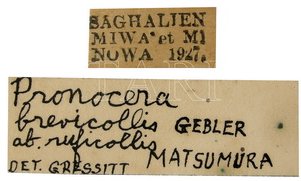 SAGHALIEN
MIWA et MI
NOWA 1927.
Pronocera
brevicollis GEBLER
ab. ruficollis
MATSUMURA
DET. GRESSITT